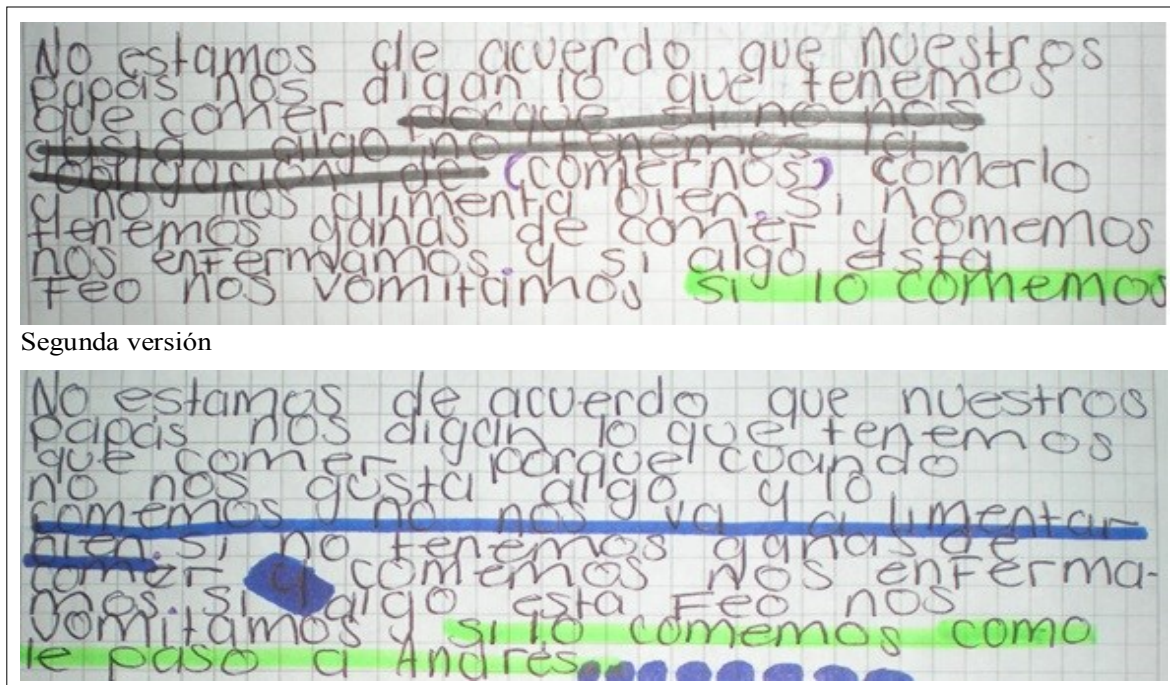 No estamos de acuerdo que nuestros
papás nos digan lo que tenemos
que comer porque si no nos
gusta algo no tenemos la
obligación de (comernos) comerlo
y no nos alimenta bien. Si no
tenemos ganas de comer y comemos
nos enfermamos. y si algo esta
Feo nos vomitamos si lo comemos
Segunda versión
No estamos de acuerdo que nuestros
papás nos digan lo que tenemos
que comer porque cuando
no nos gusta algo y lo
comemos no nos va y a limentar
bien. si no tenemos ganas de
comer y comemos nos enferma-
mos. si algo esta Feo nos
vomitamos si lo comemos como
le paso a Andrés